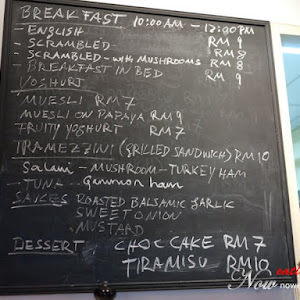 BREAKFAST 10:00AM - 12:00PM
- ENGLISH RM 9
- SCRAMBLED RM 8
- SCRAMBLED - WITH MUSHROOMS RM 8
- BREAKFAST IN BED RM 9
YOGHURT
MUESLI RM 7
MUESLI ON PAPAYA RM 9
FRUITY YOGHURT RM 7
TRAMEZZINI (GRILLED SANDWICH) RM 10
- Salami - MUSHROOM - TURKEY HAM
- TUNA - Gammon ham
SAUCES ROASTED BALSAMIC GARLIC
SWEET ONION
MUSTARD
DESSERT CHOC CAKE RM 7
TIRAMISU RM 10
Now